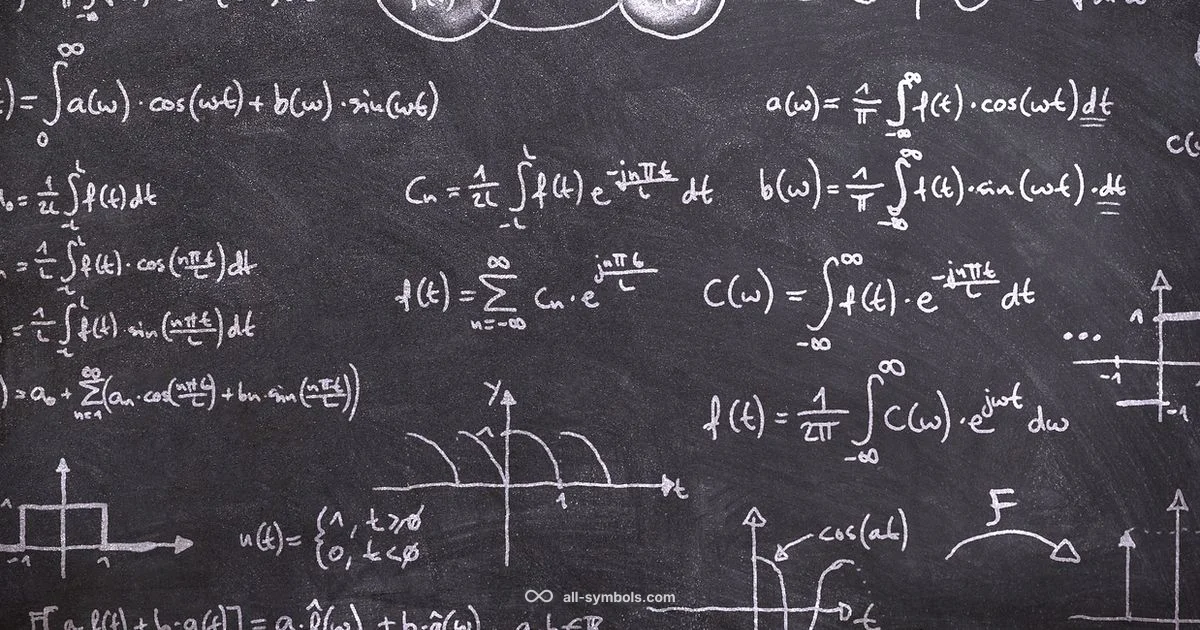 )= ∫₀^∞ a(ω)·cos(ωt)+b(ω)·sin(ωt)
a(ω)= 1/π ∫_{-∞}^{∞} f(t)·cos(ωt)dt
= 1/2L ∫_{-L}^{L} f(t)dt
Cn = 1/2L ∫_{-L}^{L} f(t) e^{-jnπt/L} dt
b(ω)= 1/π ∫_{-∞}^{∞} f(t)·sin(ωt)·dt
= 1/L ∫_{-L}^{L} f(t)·cos(nπt/L)dt
f(t)= ∑_{n=-∞}^{∞} Cn·e^{jnπt/L}
C(ω) = ∫_{-∞}^{∞} f(t)·e^{-jnπt/L} dt
= 1/L ∫_{-L}^{L} f(t)·sin(nπt/L)dt
...
1
-1
-1
)= a₀ + ∑_{n=1}^{∞}(an·cos(nπt/L)+bn·sin(nπt/L))
f(t) = 1/2π ∫_{-∞}^{∞} C(ω)·e^{jωt} dω
y
1
t
1
-1 1
u(t)= {1, t≥0
0, t<0
cos(at)
t
F
∞ all-symbols.com